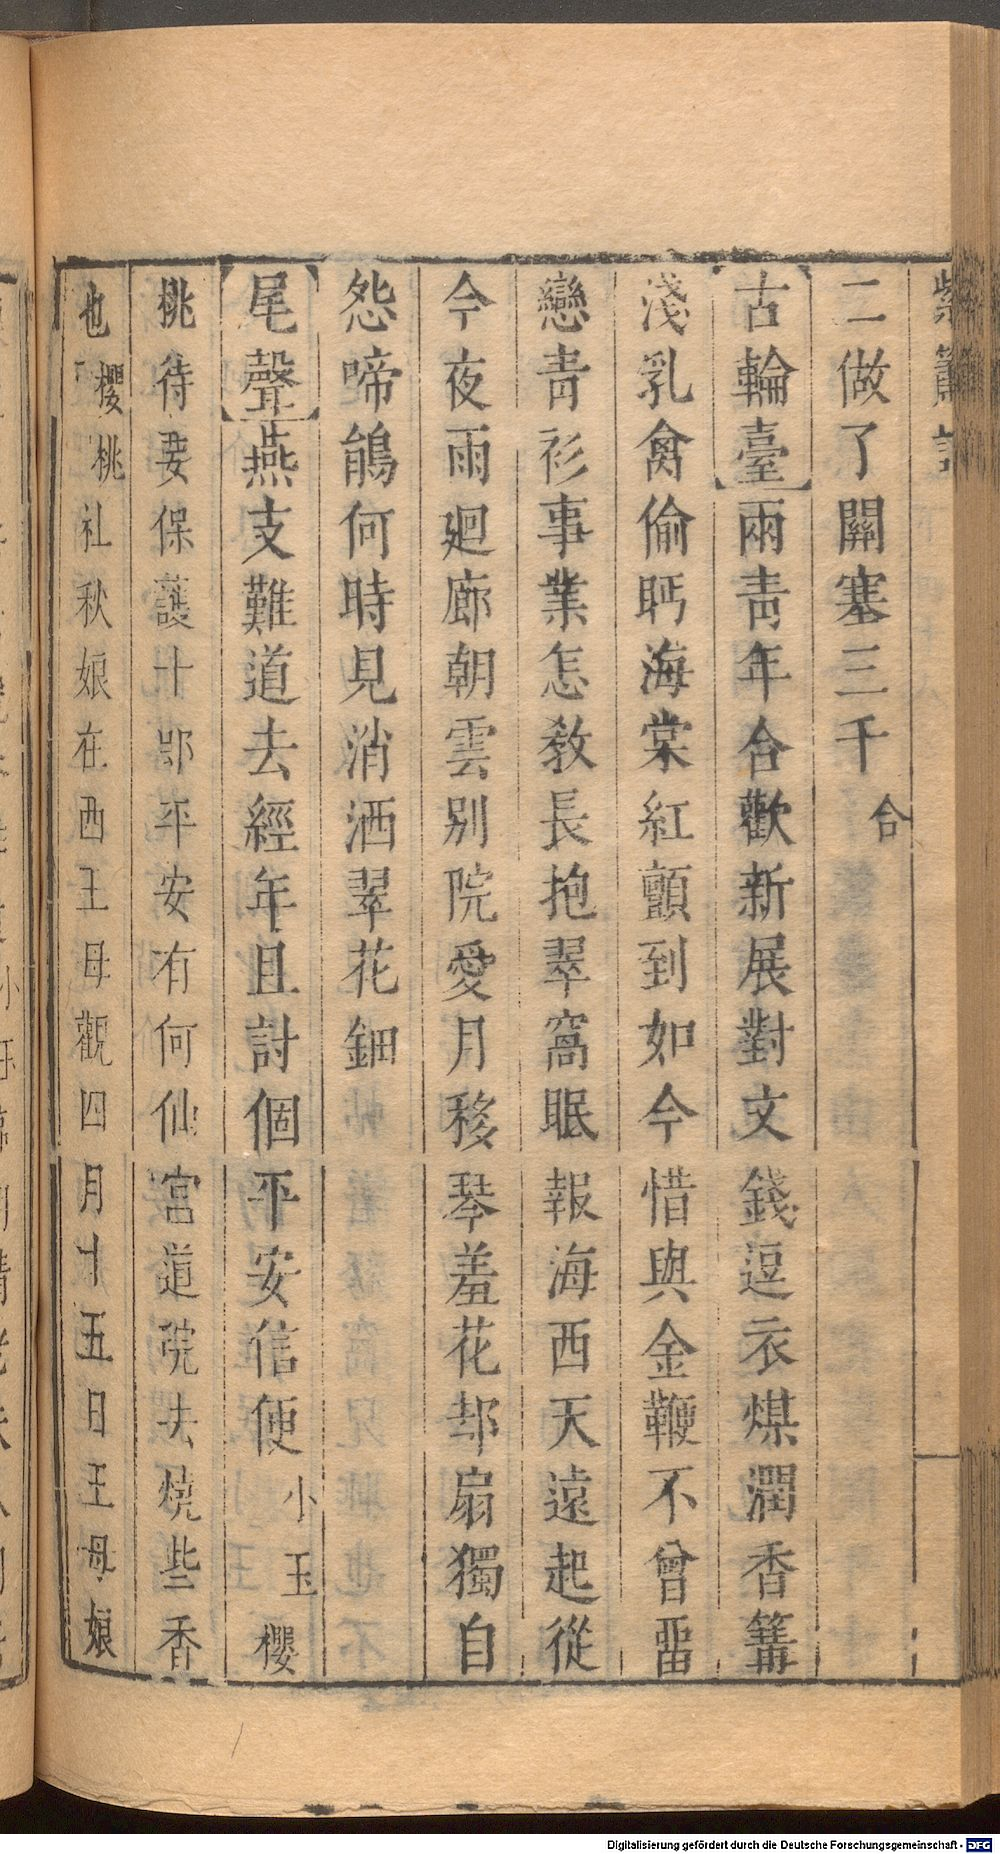 紫簫記
二做了關塞三千合
古輪臺兩青年合歡新展對文錢逗衣煤潤香篝
淺乳禽偷眄海棠紅顫到如今惜與金鞭不曾畱
戀青衫事業怎教長抱翠窩眠報海西天遠起從
今夜雨廻廊朝雲別院愛月移琴羞花却扇獨自
怨啼鵑何時見消洒翠花鈿
尾聲燕支難道去經年且討個平安信便小玉櫻
桃待妾保護十郎平安有何仙宮道院去燒些香
也櫻桃社秋娘在西王母觀四月十五日王母娘
Digitalisierung gefördert durch die Deutsche Forschungsgemeinschaft - DFG